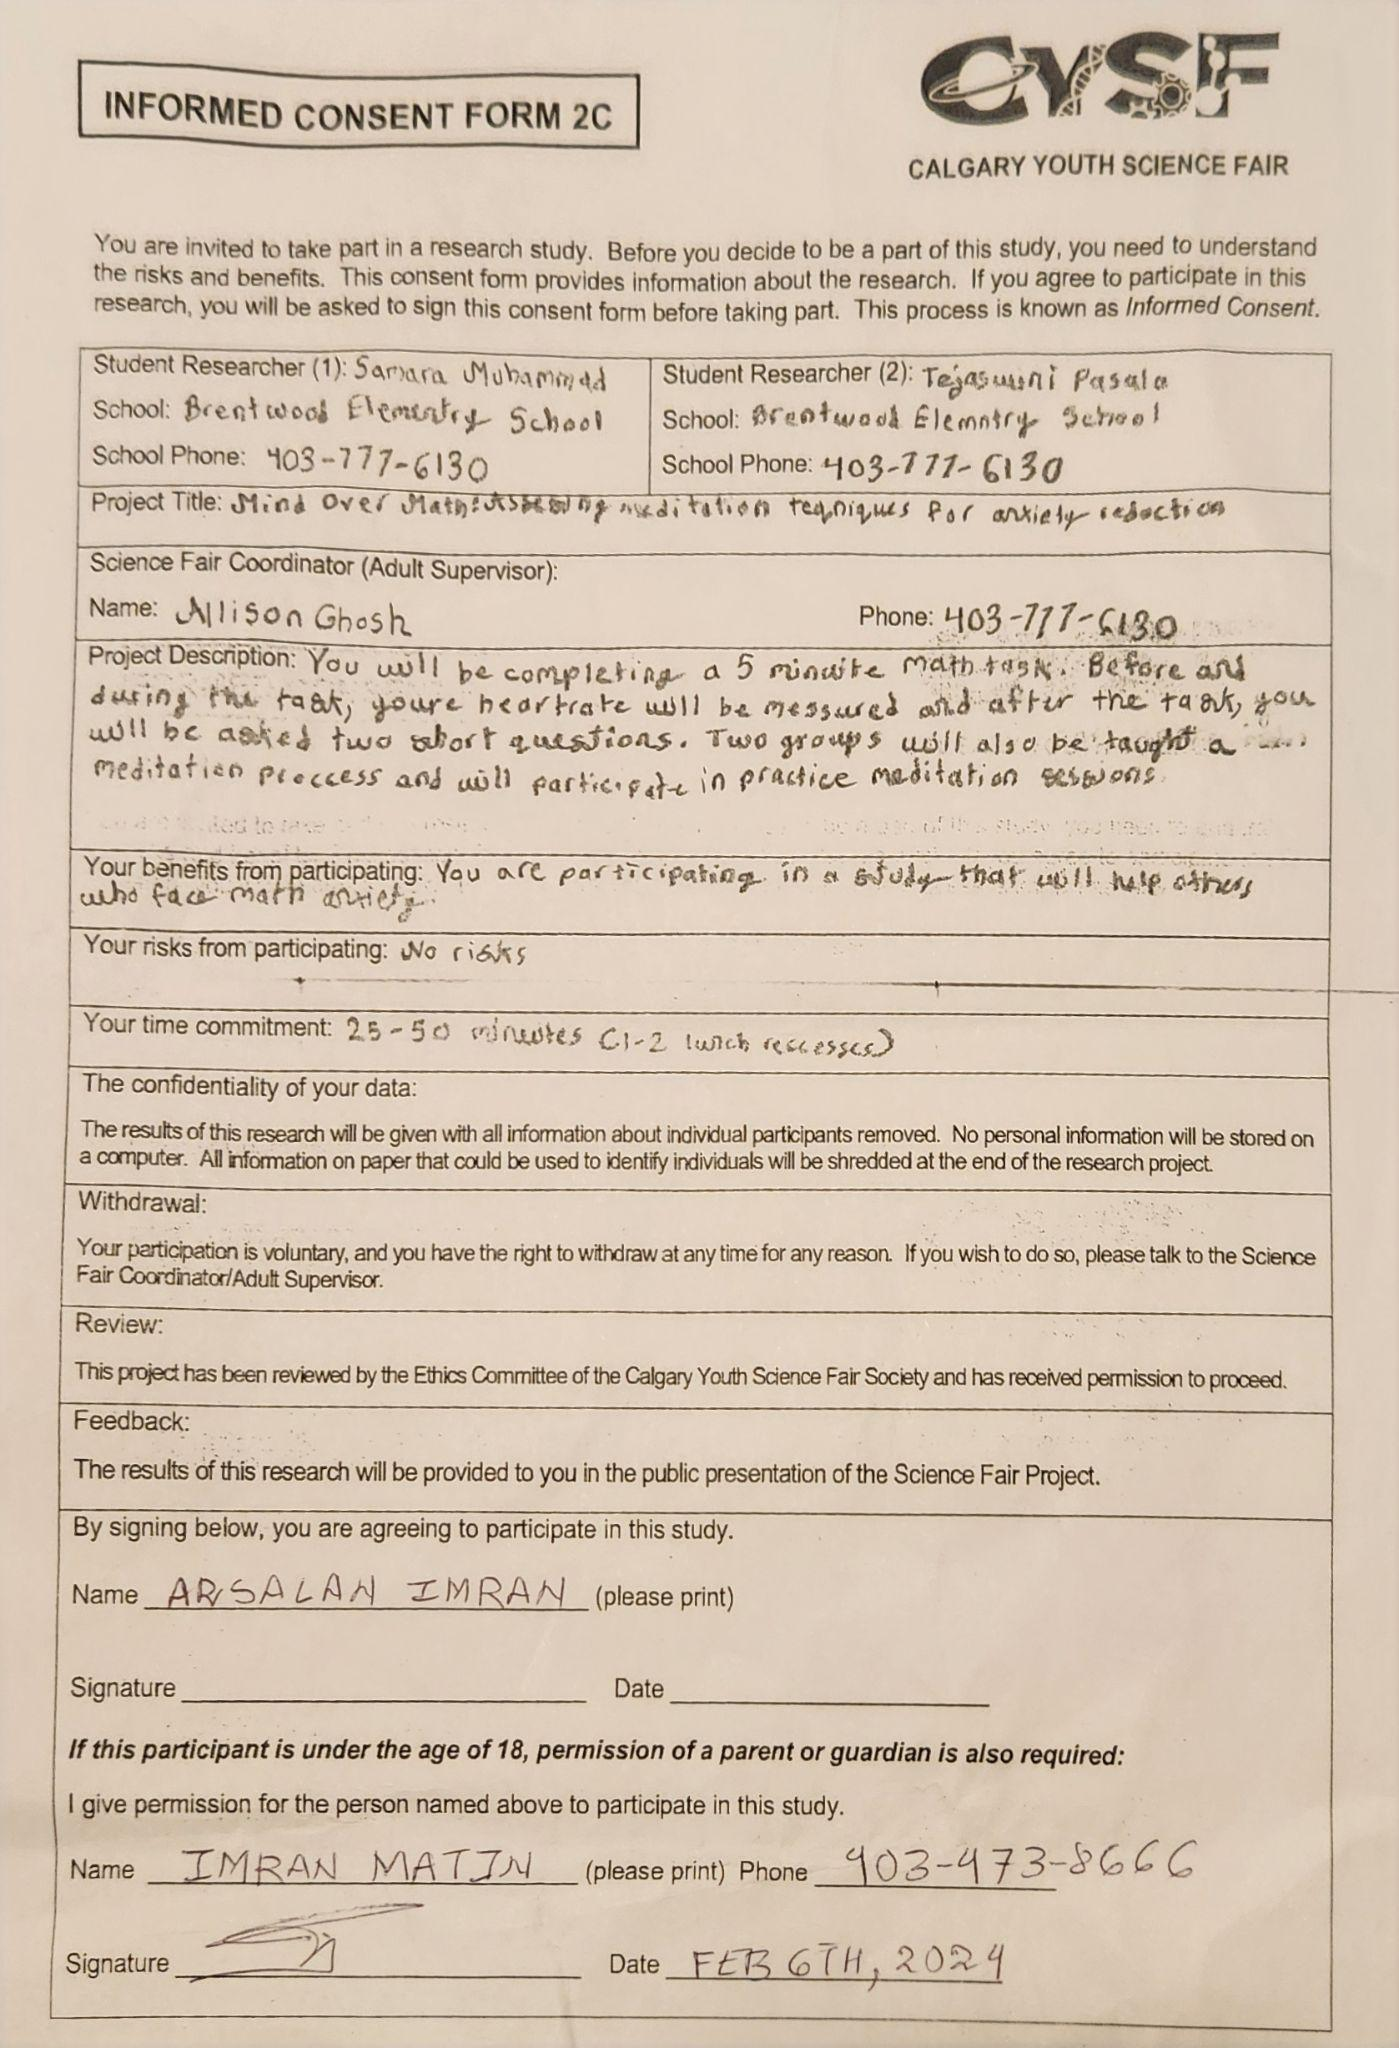 INFORMED CONSENT FORM 2C
CYSF
CALGARY YOUTH SCIENCE FAIR
You are invited to take part in a research study. Before you decide to be a part of this study, you need to understand
the risks and benefits. This consent form provides information about the research. If you agree to participate in this
research, you will be asked to sign this consent form before taking part. This process is known as Informed Consent.
Student Researcher (1): Samara Muhammad
School: Brentwood Elementry School
School Phone: 403-777-6130
Student Researcher (2): Tejaswini Pasala
School: Brentwood Elemntry School
School Phone: 403-777-6130
Project Title: Mind Over Math: Assessing meditation teqniques for anxiety reduction
Science Fair Coordinator (Adult Supervisor):
Name: Allison Ghosh Phone: 403-777-6130
Project Description: You will be completing a 5 minuite math task. Before and
during the task, youre heartrate will be messured and after the task, you
will be asked two short questions. Two groups will also be taught a
meditation proccess and will participate in practice meditation sessions.
Your benefits from participating: You are participating in a study that will help others
who face math anxiety.
Your risks from participating: No risks
Your time commitment: 25-50 minuites (1-2 lunch reccesses)
The confidentiality of your data:
The results of this research will be given with all information about individual participants removed. No personal information will be stored on
a computer. All information on paper that could be used to identify individuals will be shredded at the end of the research project.
Withdrawal:
Your participation is voluntary, and you have the right to withdraw at any time for any reason. If you wish to do so, please talk to the Science
Fair Coordinator/Adult Supervisor.
Review:
This project has been reviewed by the Ethics Committee of the Calgary Youth Science Fair Society and has received permission to proceed.
Feedback:
The results of this research will be provided to you in the public presentation of the Science Fair Project.
By signing below, you are agreeing to participate in this study.
Name ARSALAN IMRAN (please print)
Signature Date
If this participant is under the age of 18, permission of a parent or guardian is also required:
I give permission for the person named above to participate in this study.
Name IMRAN MATIN (please print) Phone 403-473-8666
Signature Date FEB 6TH, 2024